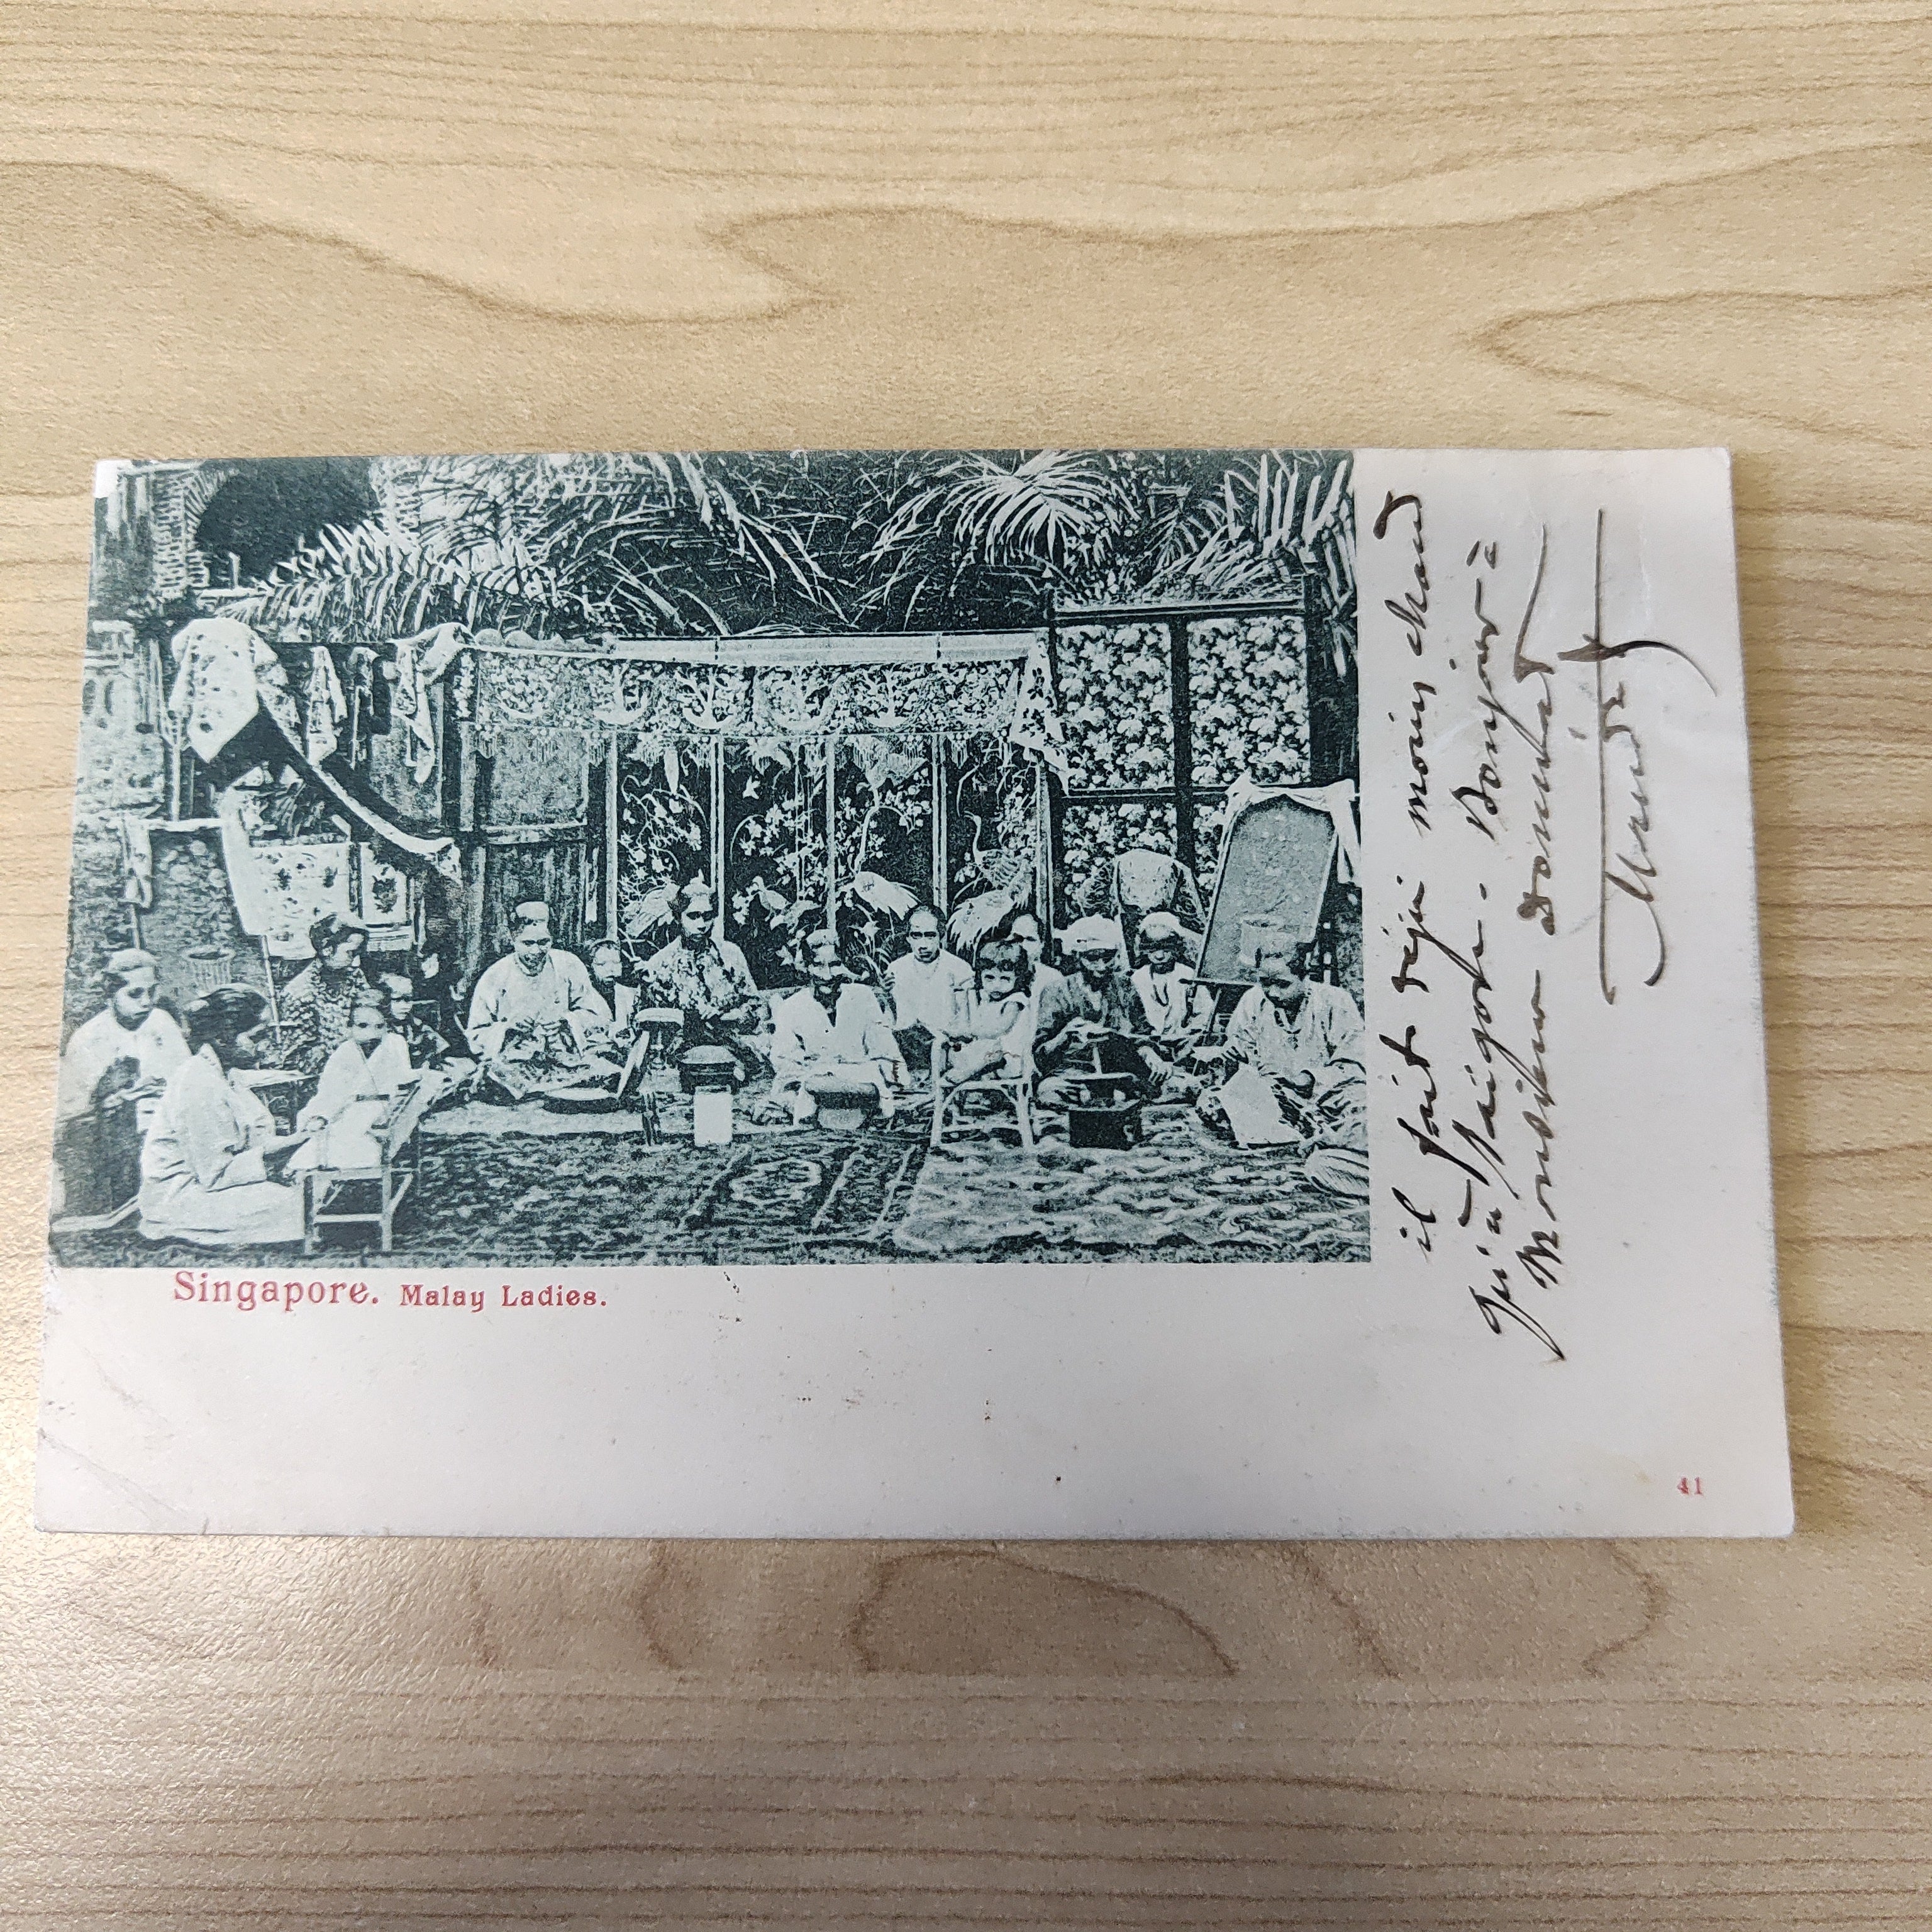 Singapore. Malay Ladies.
il fait déjà moins chaud
qu'à Saïgon. Bonjour à
Monsieur Donnat
41